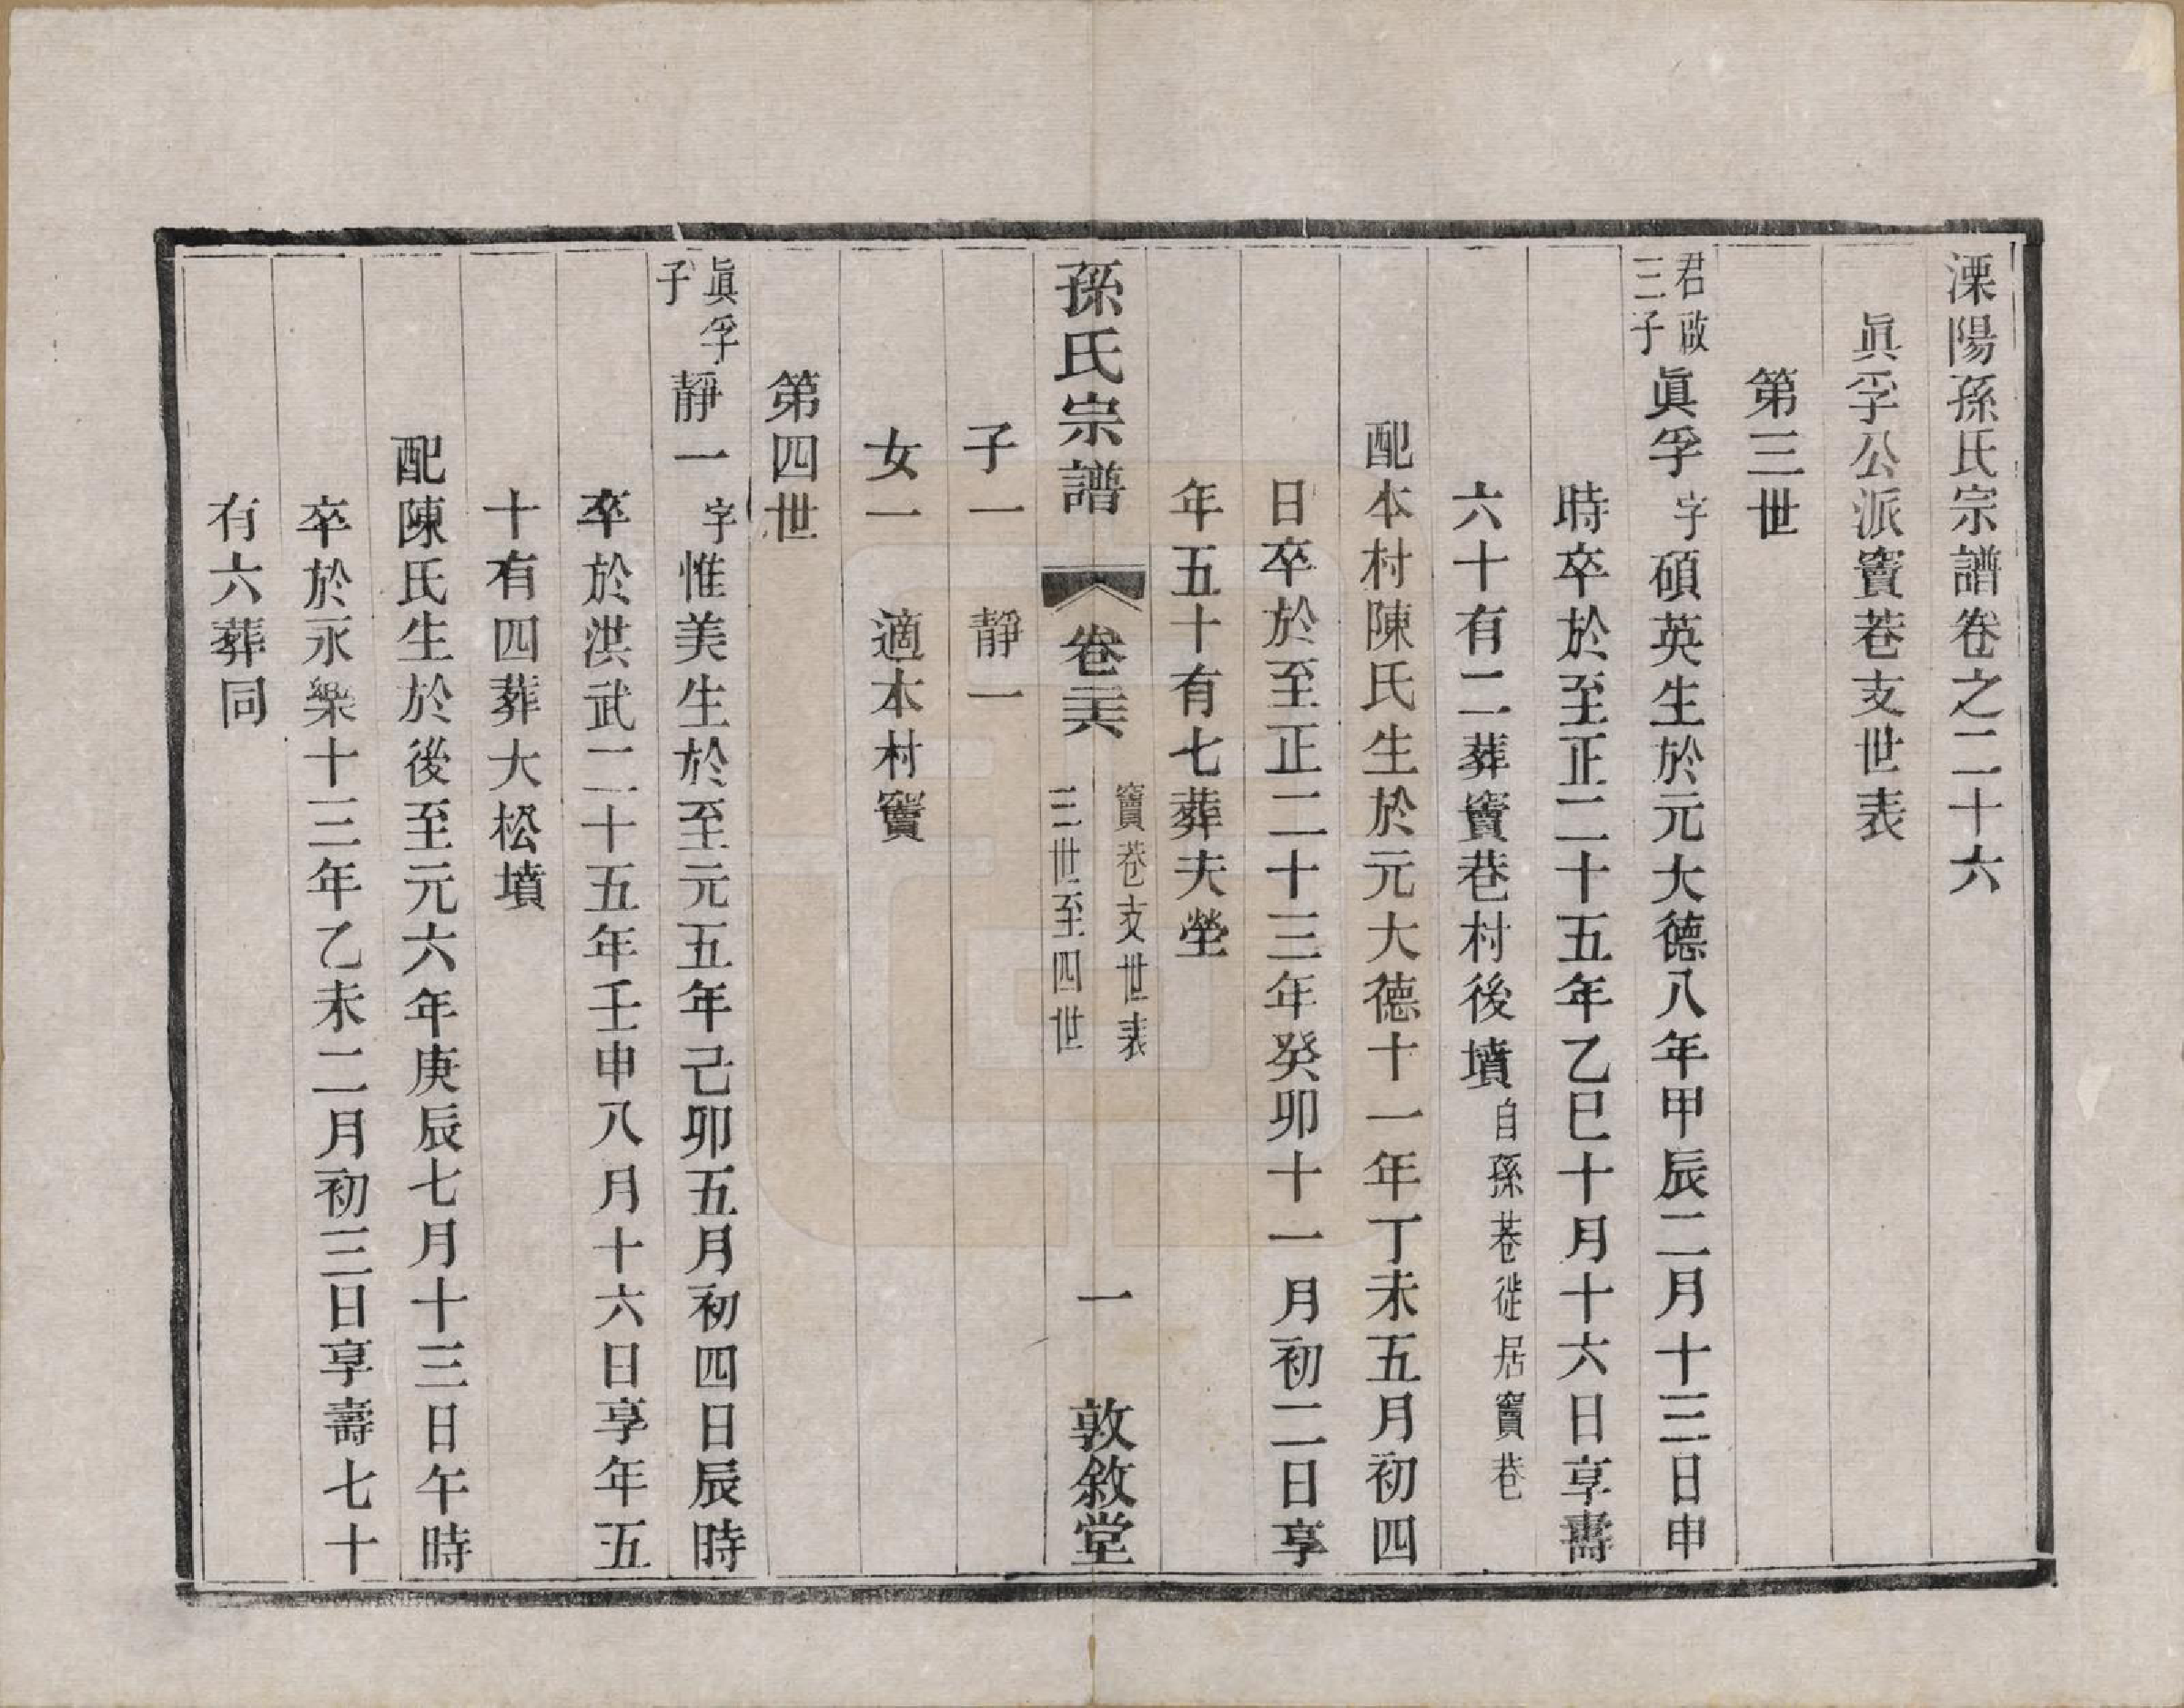 溧陽孫氏宗譜卷之二十六
眞孚公派竇巷支世表
第三世
君啟
三子
眞孚字碩英生於元大德八年甲辰二月十三日申
時卒於至正二十五年乙巳十月十六日享壽
六十有二葬竇巷村後墳自孫巷徙居竇巷
配本村陳氏生於元大德十一年丁未五月初四
日卒於至正二十三年癸卯十一月初二日享
年五十有七葬夫塋
孫氏宗譜 卷二十六 竇巷支世表
三世至四世
一 敦敘堂
子一 靜一
女一 適本村竇
第四世
眞孚
子
靜一字惟美生於至元五年己卯五月初四日辰時
卒於洪武二十五年壬申八月十六日享年五
十有四葬大松墳
配陳氏生於後至元六年庚辰七月十三日午時
卒於永樂十三年乙未二月初三日享壽七十
有六葬同